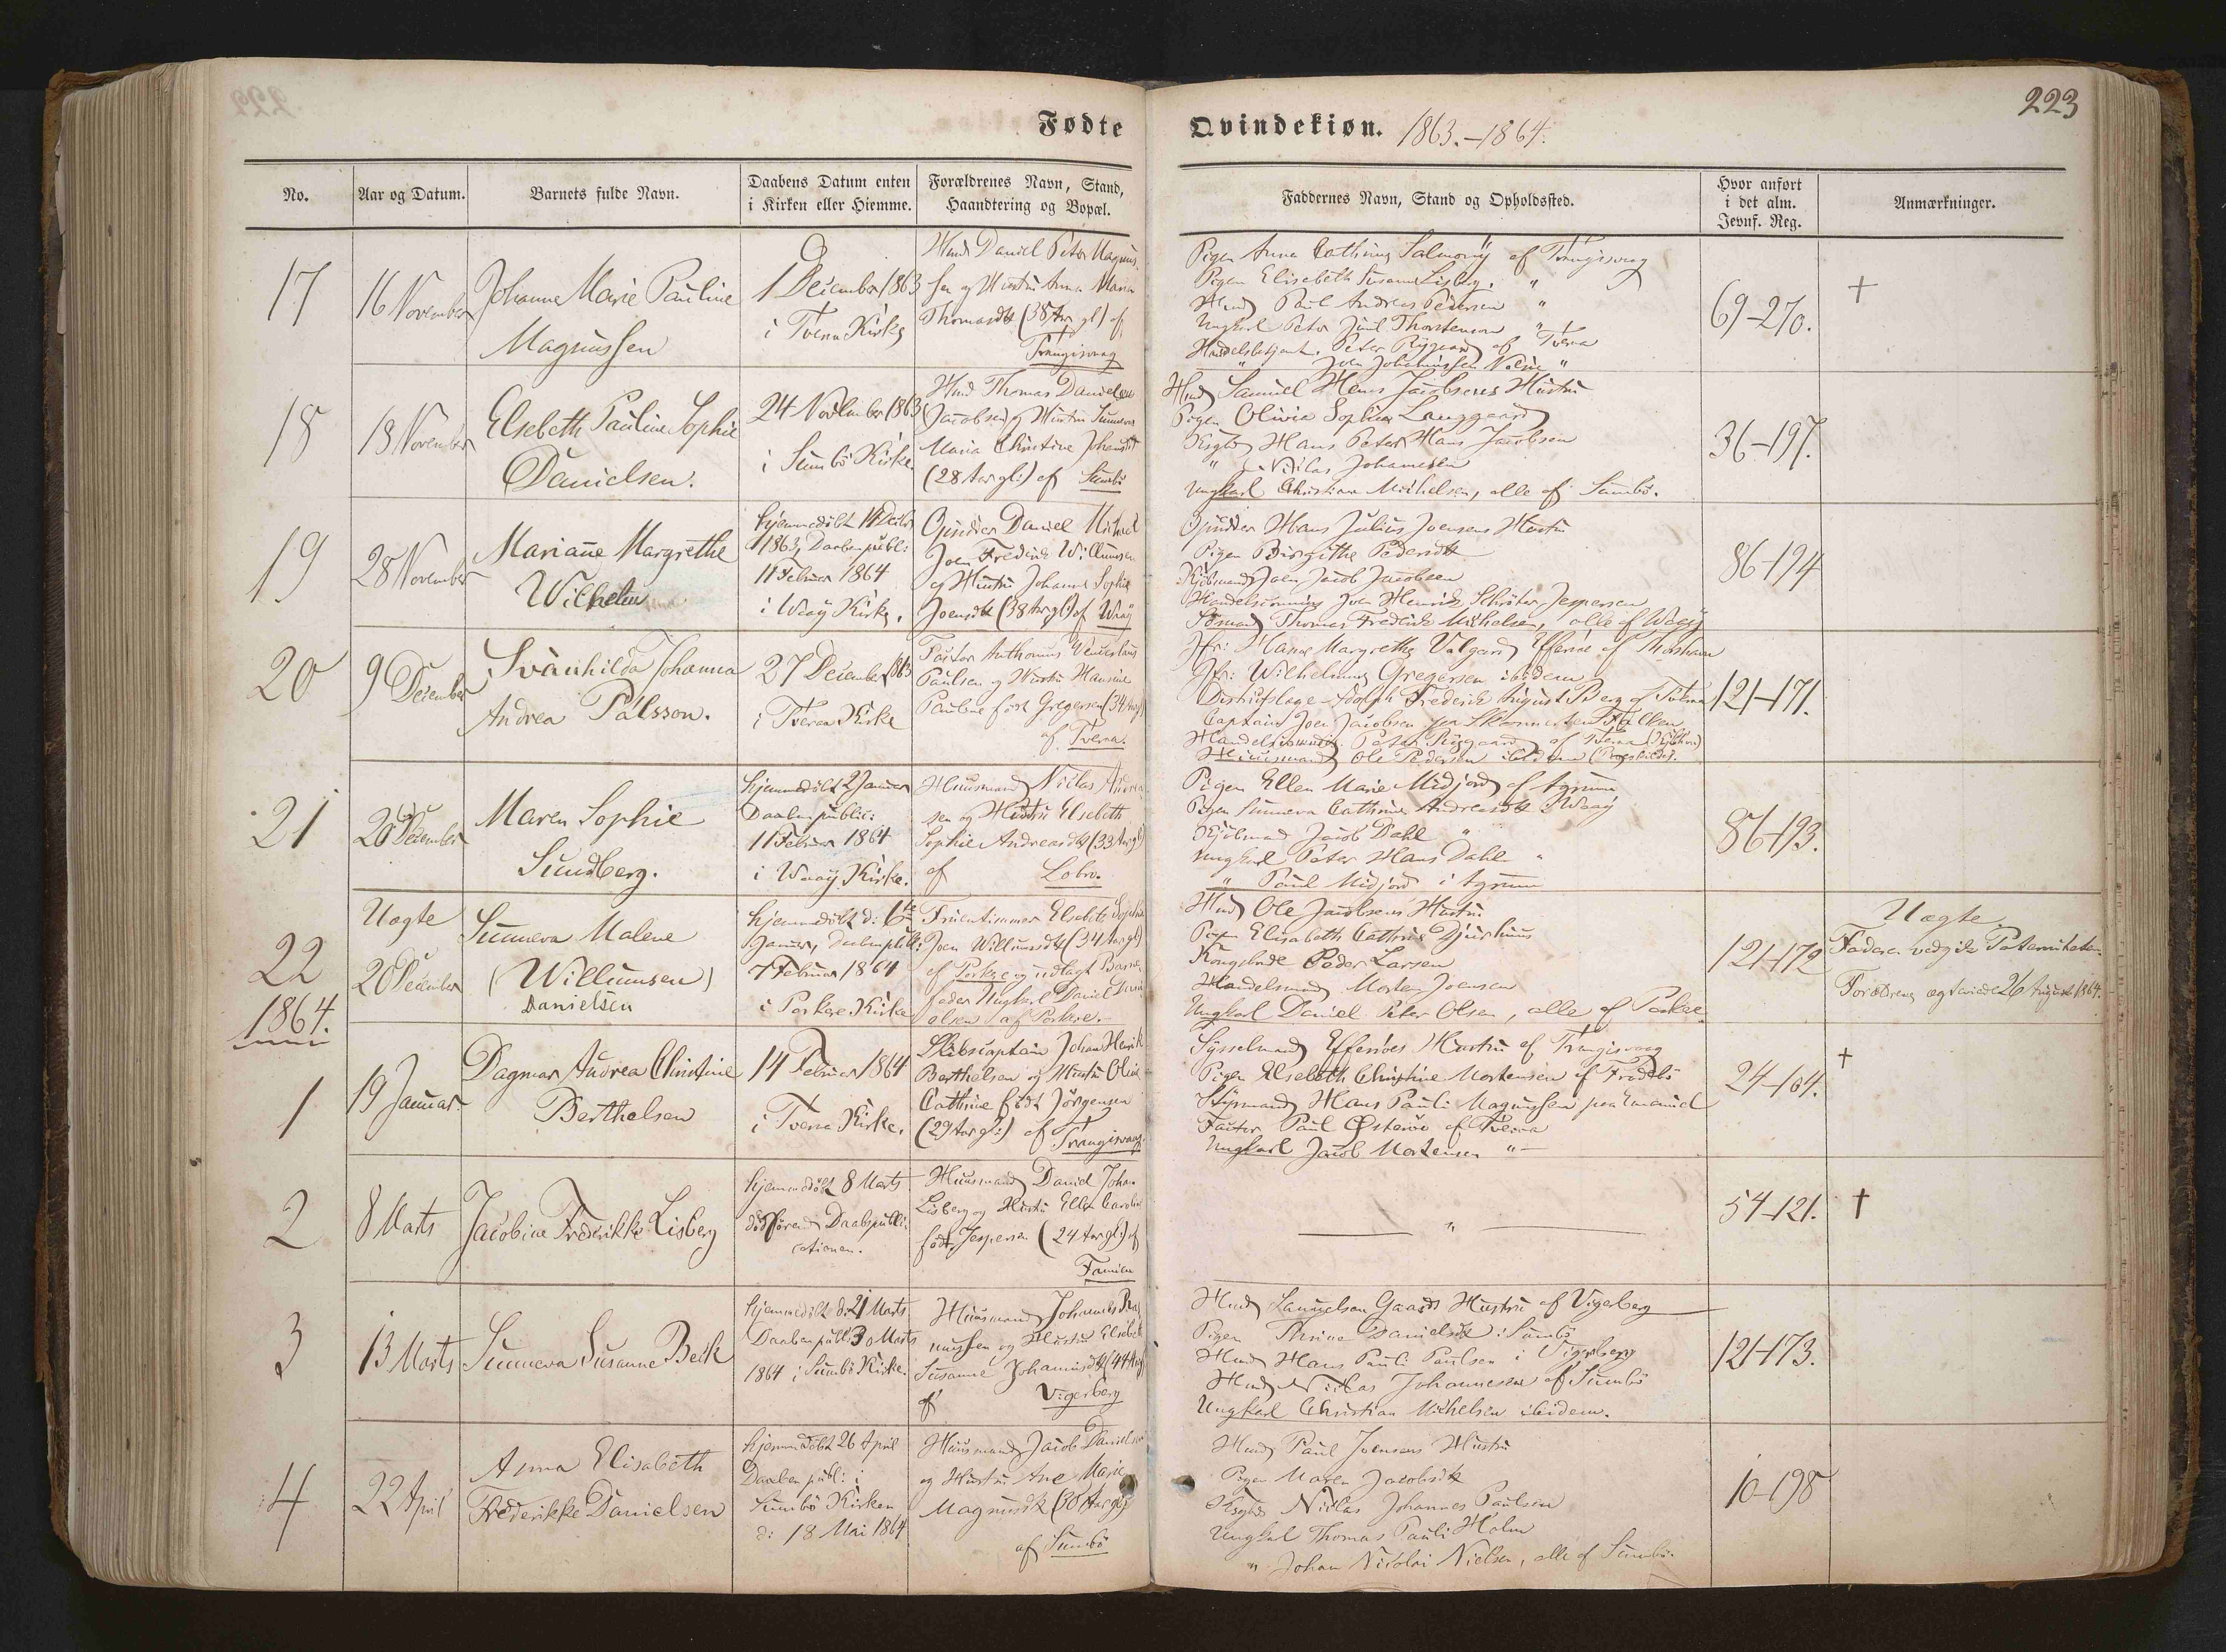 Fødte
Qvindekiøn. 1863.-1864.
223
No.
Aar og Datum.
Barnets fulde Navn.
Daabens Datum enten
i Kirken eller Hiemme.
Forældrenes Navn, Stand,
Haandtering og Bopæl.
Faddernes Navn, Stand og Opholdssted.
Hvor anført
i det alm.
Jevnf. Reg.
Anmærkninger.
17
16 November
Johanne Marie Pauline
Magnussen
1 December 1863
i Tveraa Kirke
Hmd Daniel Peter Magnus-
sen og Hustru Anna Maria
Thomasdtr (38 Aar gl) af
Trangisvaag
Pigen Anna Cathrina Salmony af Trangisvaag
Pigen Elisabeth Susanne Lisberg "
Hmd Poul Andreas Pedersen "
Ungkarl Peter Juul Thorstensen "
Handelsbetjent Peter Rÿgaard af Tveraa
" Joen Johannissen "
69-270.
†
18
18 November
Elsebeth Pauline Sophie
Danielsen.
24 November 1863
i Sumbö Kirke.
Hmd Thomas Danielsen
Jacobsen og Hustru Sunneva
Maria Christine Johansdtr
(28 Aar gl:) af Sumbö
Hmd Samuel Hans Jacobsens Hustru
Pigen Olivia Sophia Langgaard
Hans Peter Hans Jacobsen
" Niclas Johannesen
Ungkarl Christian Michelsen, alle af Sumbö.
36-197.
19
28 November
Mariane Margrethe
Wilhelm
hjemmedöbt 14 Decbr
1863, Daaben publ:
11 Februar 1864
i Waag Kirke.
Daniel Michael
Joen Frederik Willumsen
og Hustru Johanne Sophie
Joensdtr (38 Aar gl) af Waag
Hans Julius Joensens Hustru
Pigen Birgithe Pedersdtr
Kjöbmand Joen Jacob Jacobsen
Joen Henrik Schröter Jespersen
Thomas Frederik Michelsen, alle af Waag
86-194
20
9 December
Svanhilda Johanna
Andrea Pálsson.
27 December 1863
i Tveraa Kirke
Factor Anthonius Wenceslaus
Paulsen og Hustru Hansine
Pauline födt Gregersen (34 Aar gl)
af Tveraa.
Jfr: Maria Margrethe Valgerd Effersøe af Thorshavn
Jfr: Wilhelmina Gregersen ibidem
Districtslæge Adolph Frederik August Berg af Tveraa
Captain Joen Jacobsen paa Skonnerten Falken
Peter Rÿgaard af Tveraa
Huusmand Ole Pedersen ibidem
121-171.
21
26 December
Maren Sophie
Sundberg.
hjemmedöbt 2 Januar
Daaben public:
11 Februar 1864
i Waag Kirke.
Huusmand Niclas
sen og Hustru Elsebeth
Sophie Andreasdtr (33 Aar gl)
af Lobra.
Pigen Ellen Marie Midjord af
Pigen Sunneva Cathrine Andreasdtr i Waag
Kjöbmand Jacob Dahl "
Ungkarl Peter Hans Dahl "
" Poul Midjord i
86-193.
Uægte
22
20 December
Sunneva Malene
(Willumsen)
Danielsen
hjemmedöbt d: 6te
Januar, Daaben publ:
7 Februar 1864
i Porkere Kirke
Fruentimmer Elsebeth Sophie
Joen Willumsdtr (34 Aar gl)
af Porkere og udlagt Barne-
fader Ungkarl Daniel Dani-
elsen af Porkere.
Hmd Ole Jacobsens Hustru
Pigen Elisabeth Cathrine Djurhuus
Kongsbonde Peder Larsen
Handelsmand Morten Joensen
Ungkarl Daniel Peter Olsen, alle af Porkere
121-172
Uægte
Faderen vedgik Paterniteten.
Forældrene ægteviede 26 August 1864.
1864.
1
19 Januar.
Dagmar Andrea Christine
Berthelsen
14 Februar 1864
i Tveraa Kirke.
Skibscaptain Johan Henrik
Berthelsen og Hustru Olivia
Cathrine födt Jörgensen
(29 Aar gl:) af Trangisvaag.
Sysselmand Effersöes Hustru af Trangisvaag
Pigen Elsebeth Christine Mortensen af Frodebö
Styrmand Hans Pauli Magnussen paa Emanuel
Factor Paul Østeröe af Tveraa
Ungkarl Jacob Mortensen "
24-164.
†
2
8 Marts
Jacobine Frederikke Lisberg
hjemmedöbt 8 Marts
död förend Daabspubli-
cationen.
Huusmand Daniel Johan
Lisberg og Hustru Ellen Caroline
födt Jespersen (24 Aar gl:) af
Famien
"
54-121.
†
3
13 Marts
Sunneva Susanne Beck
hjemmedöbt d: 21 Marts
Daaben publ: 30 Marts
1864 i Sumbö Kirke.
Huusmand Johannes Ras-
mussen og Hustru Elsebeth
Susanne Johannisdtr (44 Aar gl)
af Vigerberg
Hmd Samuelsen Gaards Hustru af Vigerberg
Pigen Thrine Danielsdtr i Sumbö
Hmd Hans Pauli Poulsen i Vigerberg
Hmd Niclas Johannesen af Sumbö
Ungkarl Christian Michelsen ibidem.
121-173.
4
22 April
Anna Elisabeth
Frederikke Danielsen
hjemmedöbt 26 April
Daaben publ: i
Sumbö Kirken
d: 18 Mai 1864
Huusmand Jacob Danielsen
og Hustru Ane Marie
Magnusdtr (30 Aar gl)
af Sumbö
Hmd Paul Joensens Hustru
Pigen Maren Jacobsdtr
Niclas Johannes Poulsen
Ungkarl Thomas Pauli Holm
" Johan Nicolai Nielsen, alle af Sumbö.
10-198